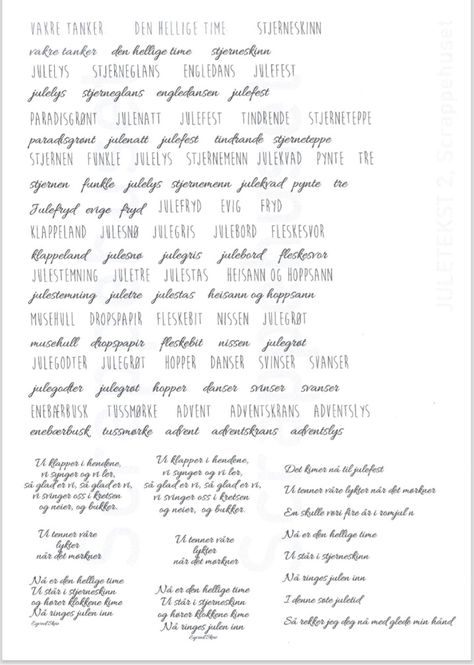 VAKRE TANKER DEN HELLIGE TIME STJERNESKINN
vakre tanker den hellige time stjerneskinn
JULELYS STJERNEGLANS ENGLEDANS JULEFEST
julelys stjerneglans engledansen julefest
PARADISGRØNT JULENATT JULEFEST TINDRENDE STJERNETEPPE
paradisgrønt julenatt julefest tindrande stjerneteppe
STJERNEN FUNKLE JULELYS STJERNEMENN JULEKVAD PYNTE TRE
stjernen funkle julelys stjernemenn julekvad pynte tre
Julefryd evige fryd JULEFRYD EVIG FRYD
KLAPPELAND JULESNØ JULEGRIS JULEBORD FLESKESVOR
klappeland julesnø julegris julebord fleskesvor
JULESTEMNING JULETRE JULESTAS HEISANN OG HOPPSANN
julestemning juletre julestas heisann og hoppsann
MUSEHULL DROPSPAPIR FLESKEBIT NISSEN JULEGRØT
musehull dropspapir fleskebit nissen julegrøt
JULEGODTER JULEGRØT HOPPER DANSER SVINSER SVANSER
julegodter julegrøt hopper danser svinser svanser
ENEBÆRBUSK TUSSMØRKE ADVENT ADVENTSKRANS ADVENTSLYS
enebærbusk tussmørke advent adventskrans adventslys
Vi klapper i hendene,
vi synger og vi ler,
så glad er vi, så glad er vi,
vi svinger oss i kretsen
og neier, og bukker.
Vi tenner våre
lykter
når det mørkner
Nå er den hellige time
Vi står i stjerneskinn
og hører klokkene kime
Nå ringes julen inn
Eyvind Skeie
Vi klapper i hendene,
vi synger og vi ler,
så glad er vi, så glad er vi,
vi svinger oss i kretsen
og neier, og bukker.
Vi tenner våre
lykter
når det mørkner
Nå er den hellige time
Vi står i stjerneskinn
og hører klokkene kime
Nå ringes julen inn
Eyvind Skeie
Det kimer nå til julefest
Vi tenner våre lykter når det mørkner
En skulle vøri fire år i romjul'n
Nå er den hellige time
Vi står i stjerneskinn
Nå ringes julen inn
I denne søte juletid
Så rekker jeg deg nå med glede min hånd
JULETEKST 2, Scrappehuset